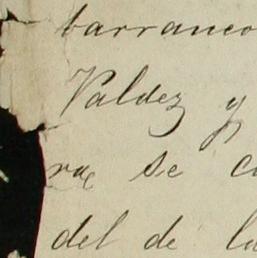 barranco
Valdez y
ra se c
del de la